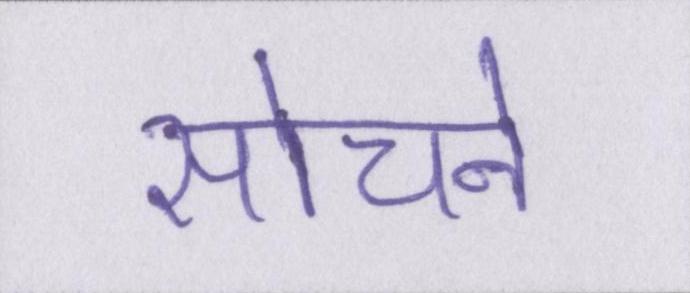 सोचने